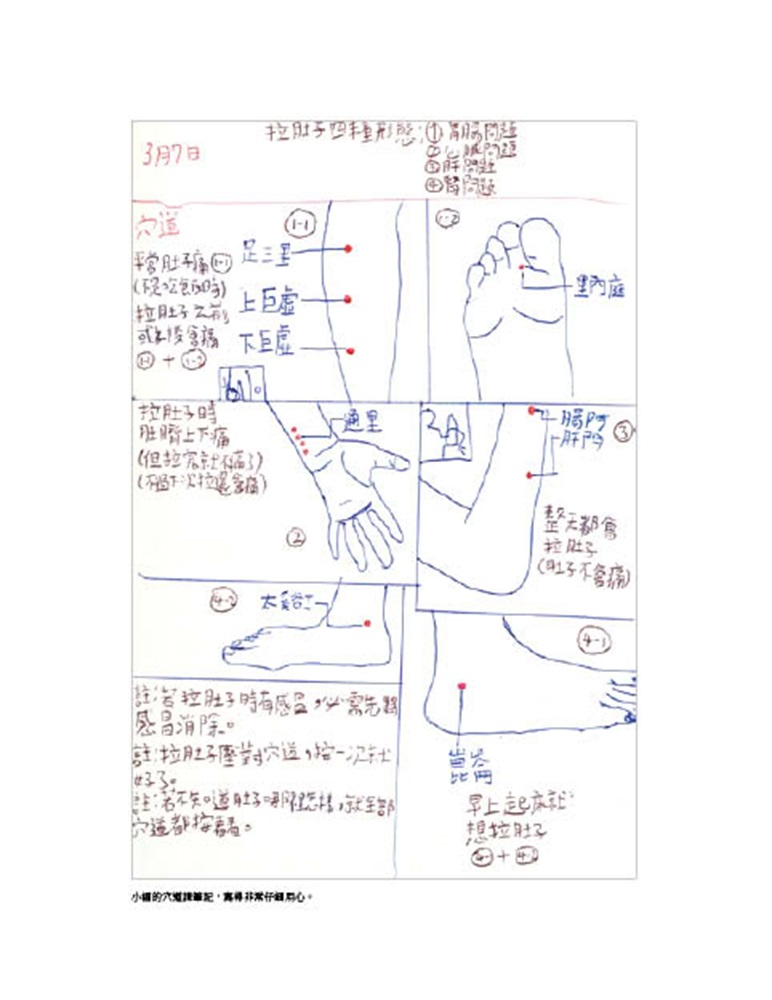 3月7日
拉肚子四種形態:① 胃腸問題
② 心臟問題
③ 肝問題
④ 腎問題
穴道
平常肚子痛 1-1
(不是吃飯時)
拉肚子之前
或之後會痛
1-1 + 1-2
1-1
足三里
上巨虛
下巨虛
1-2
里內庭
拉肚子時
肚臍上下痛
(但拉完就不痛了)
(不過下次拉還會痛)
通里
②
腸門
肝門
③
整天都會
拉肚子
(肚子不會痛)
4-2
太谿
4-1
崑崙
早上起床就
想拉肚子
4-1 + 4-2
註:若拉肚子時有感冒,必需先將
感冒消除。
註:拉肚子壓對穴道,按一次就
好了。
註:若不知道肚子哪怎樣,就全部
穴道都按看看。
的穴道課筆記,寫得非常仔細用心。